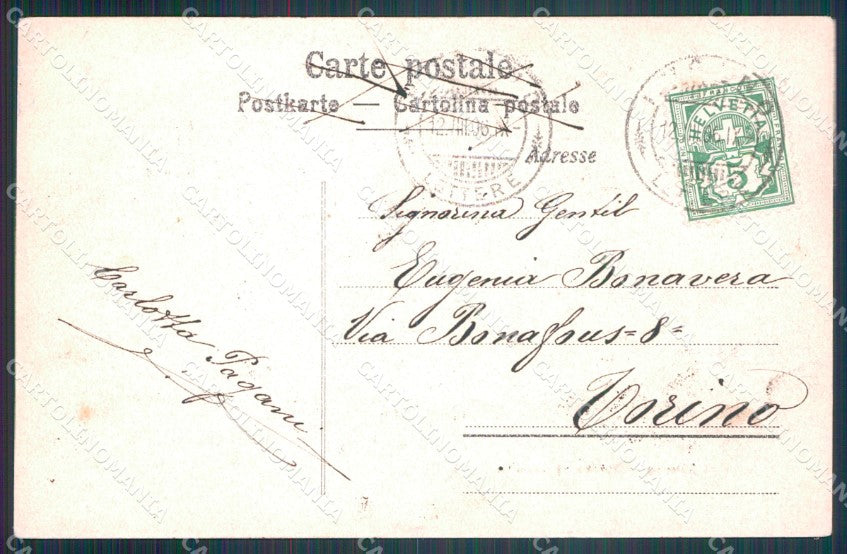 Carte postale
Postkarte — Cartolina postale
12.VIII.06.
LETTERE
Adresse
HELVETIA
5
Signorina Gentil
Eugenia Bonavera
Via Bonafous = 8 =
Torino
Carlotta Pagani
CARTOLINOMANIA